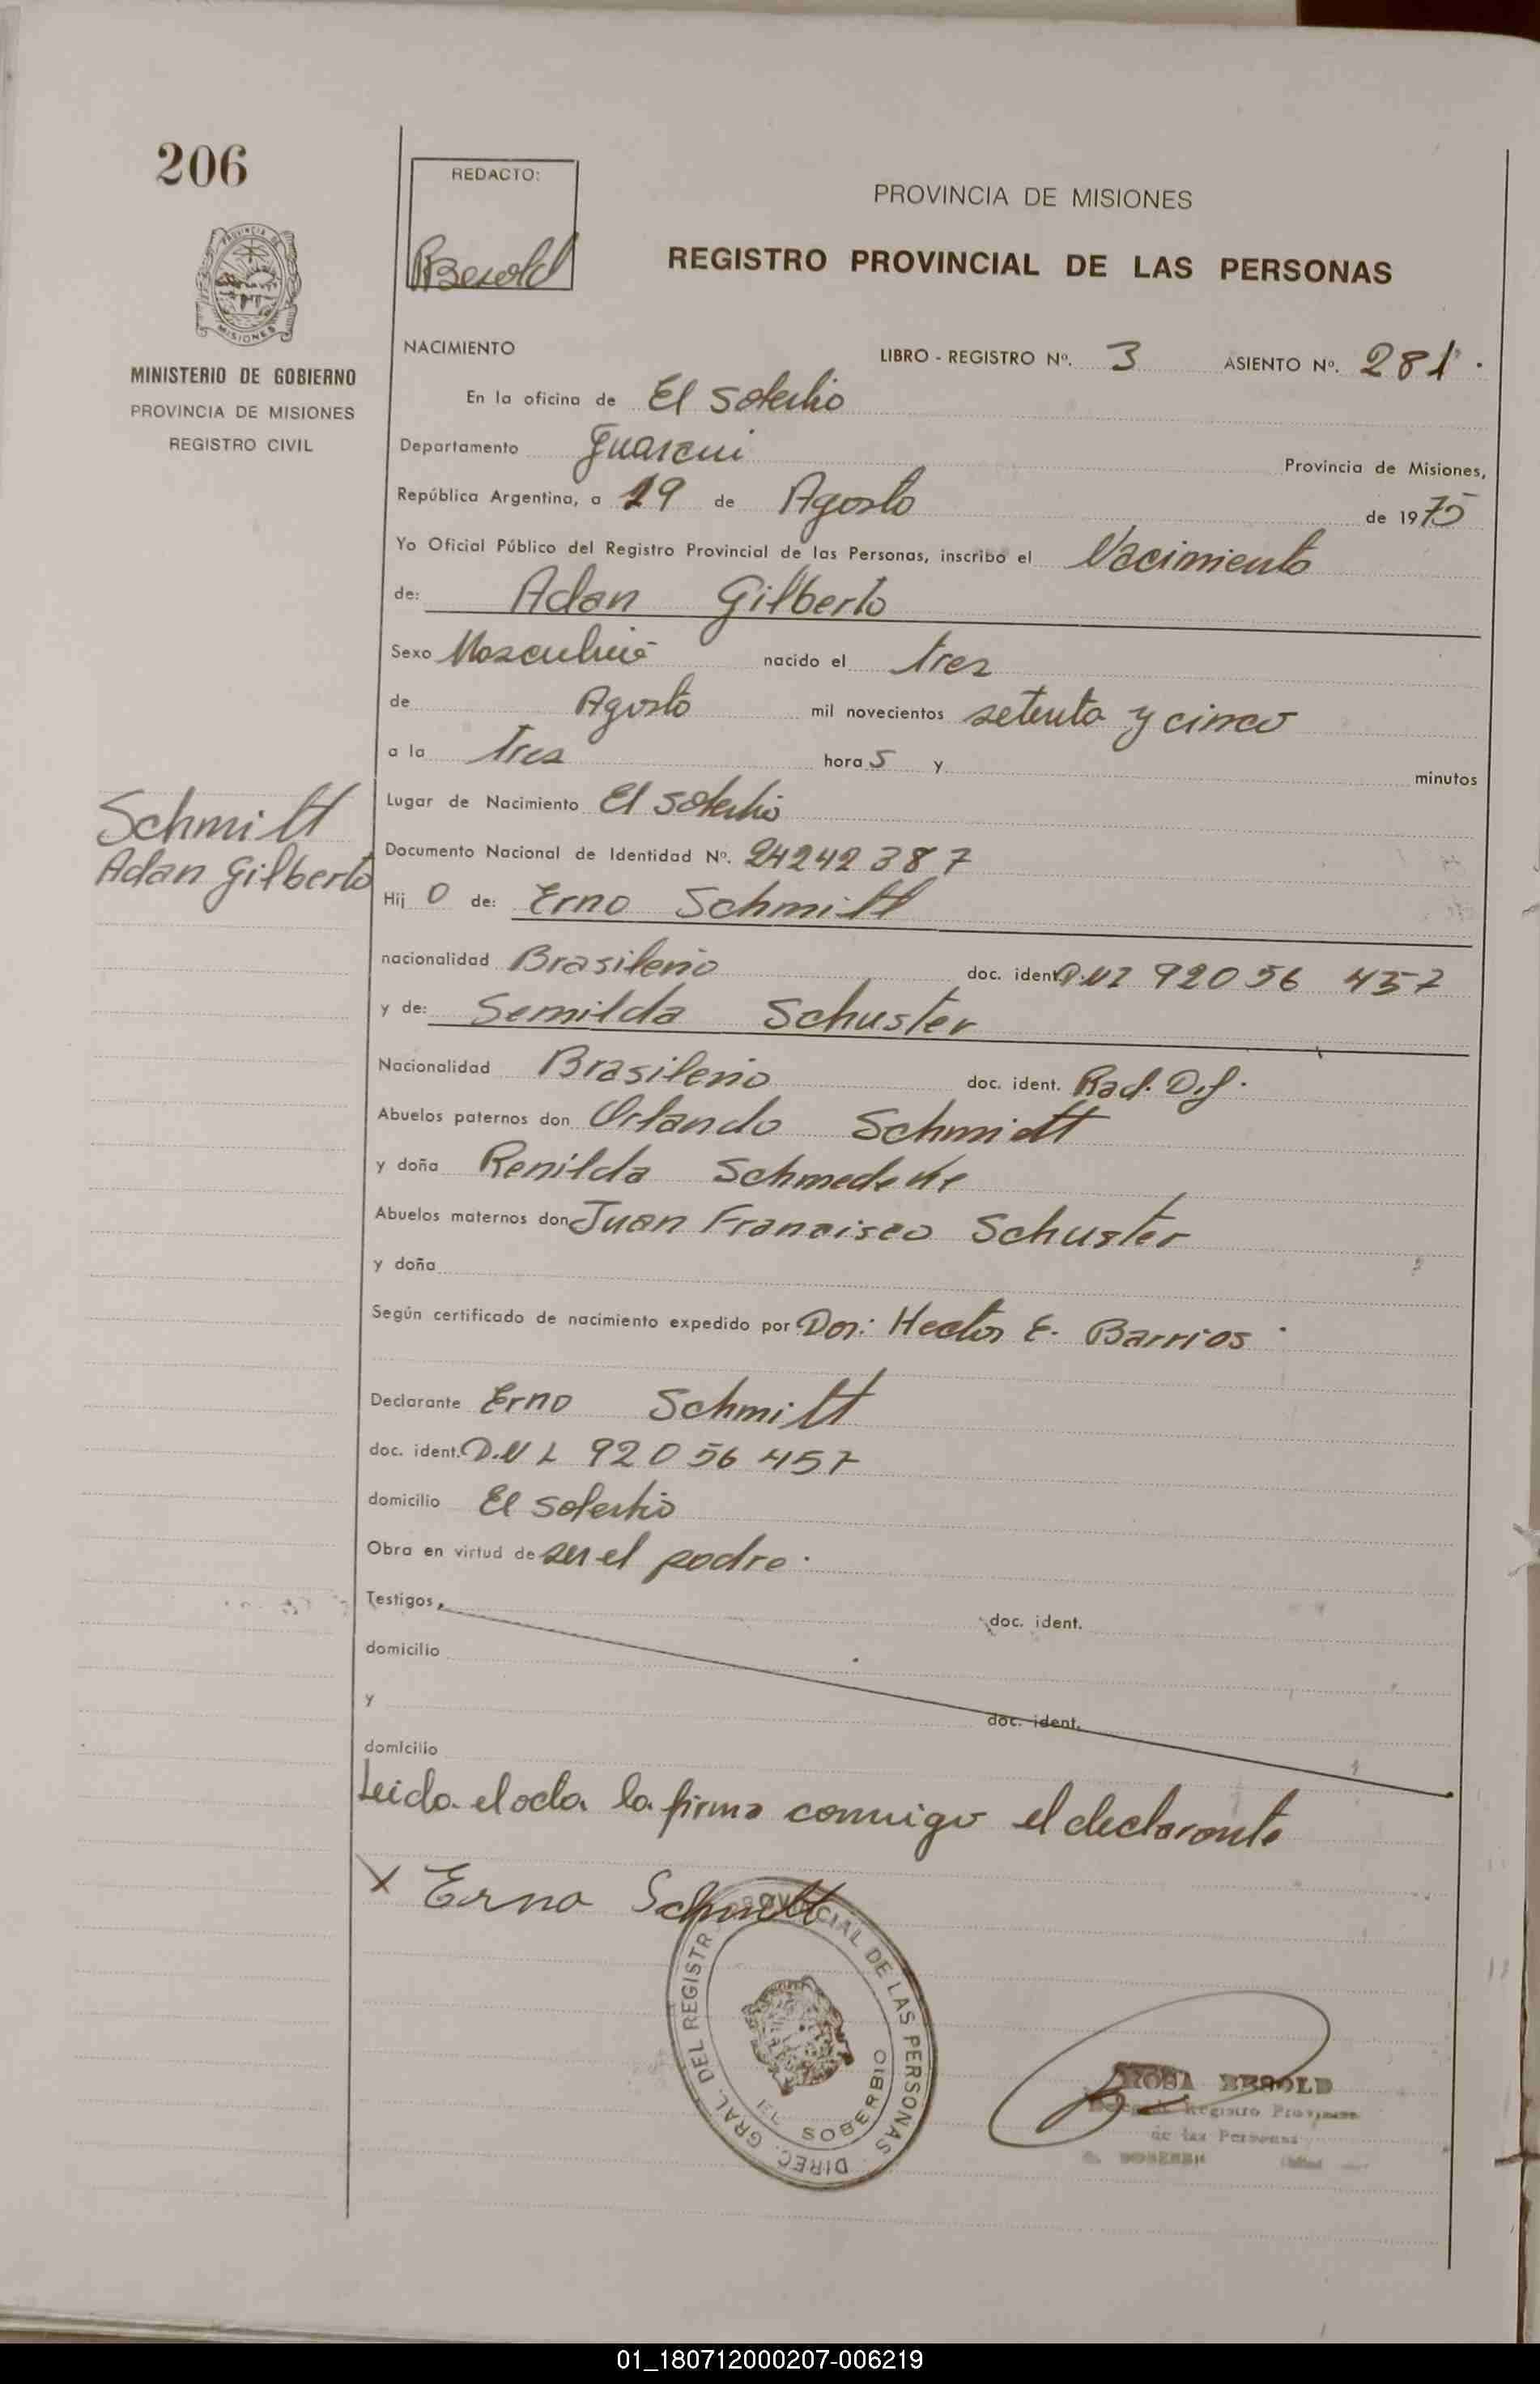 206
REDACTO:
PROVINCIA DE MISIONES
REGISTRO PROVINCIAL DE LAS PERSONAS
PROVINCIA DE
MISIONES
MINISTERIO DE GOBIERNO
PROVINCIA DE MISIONES
REGISTRO CIVIL
NACIMIENTO
LIBRO - REGISTRO Nº. 3 ASIENTO Nº. 281
En la oficina de El Soberbio
Departamento Guarani Provincia de Misiones,
República Argentina, a 19 de Agosto de 1975
Yo Oficial Público del Registro Provincial de las Personas, inscribo el Nacimiento
de: Adan Gilberto
Sexo Masculino nacido el tres
de Agosto mil novecientos setenta y cinco
a la tres horas y minutos
Lugar de Nacimiento El Soberbio
Schmitt
Adan Gilberto
Documento Nacional de Identidad Nº. 24242387
Hijo de: Erno Schmitt
nacionalidad Brasileño doc. ident. D.N.I 92056 457
y de: Semilda Schuster
Nacionalidad Brasileño doc. ident. Rad.
Abuelos paternos don Orlando Schmidt
y doña Renilda
Abuelos maternos don Juan Francisco Schuster
y doña
Según certificado de nacimiento expedido por Hector E. Barrios
Declarante Erno Schmitt
doc. ident. D.N I 92056457
domicilio El Soberbio
Obra en virtud de ser el padre.
Testigos, doc. ident.
domicilio
y doc. ident.
domicilio
Leida el acta la firma conmigo el declarante
X Erno Schmitt
DIREC. GRAL. DEL REGISTRO PROVINCIAL DE LAS PERSONAS
EL SOBERBIO
ROSA BESOLD
Registro
de las Personas
01_180712000207-006219